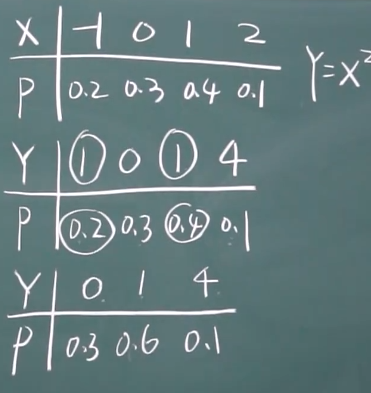 X -1 0 1 2
P 0.2 0.3 0.4 0.1 Y=X²
Y 1 0 1 4
P 0.2 0.3 0.4 0.1
Y 0 1 4
P 0.3 0.6 0.1